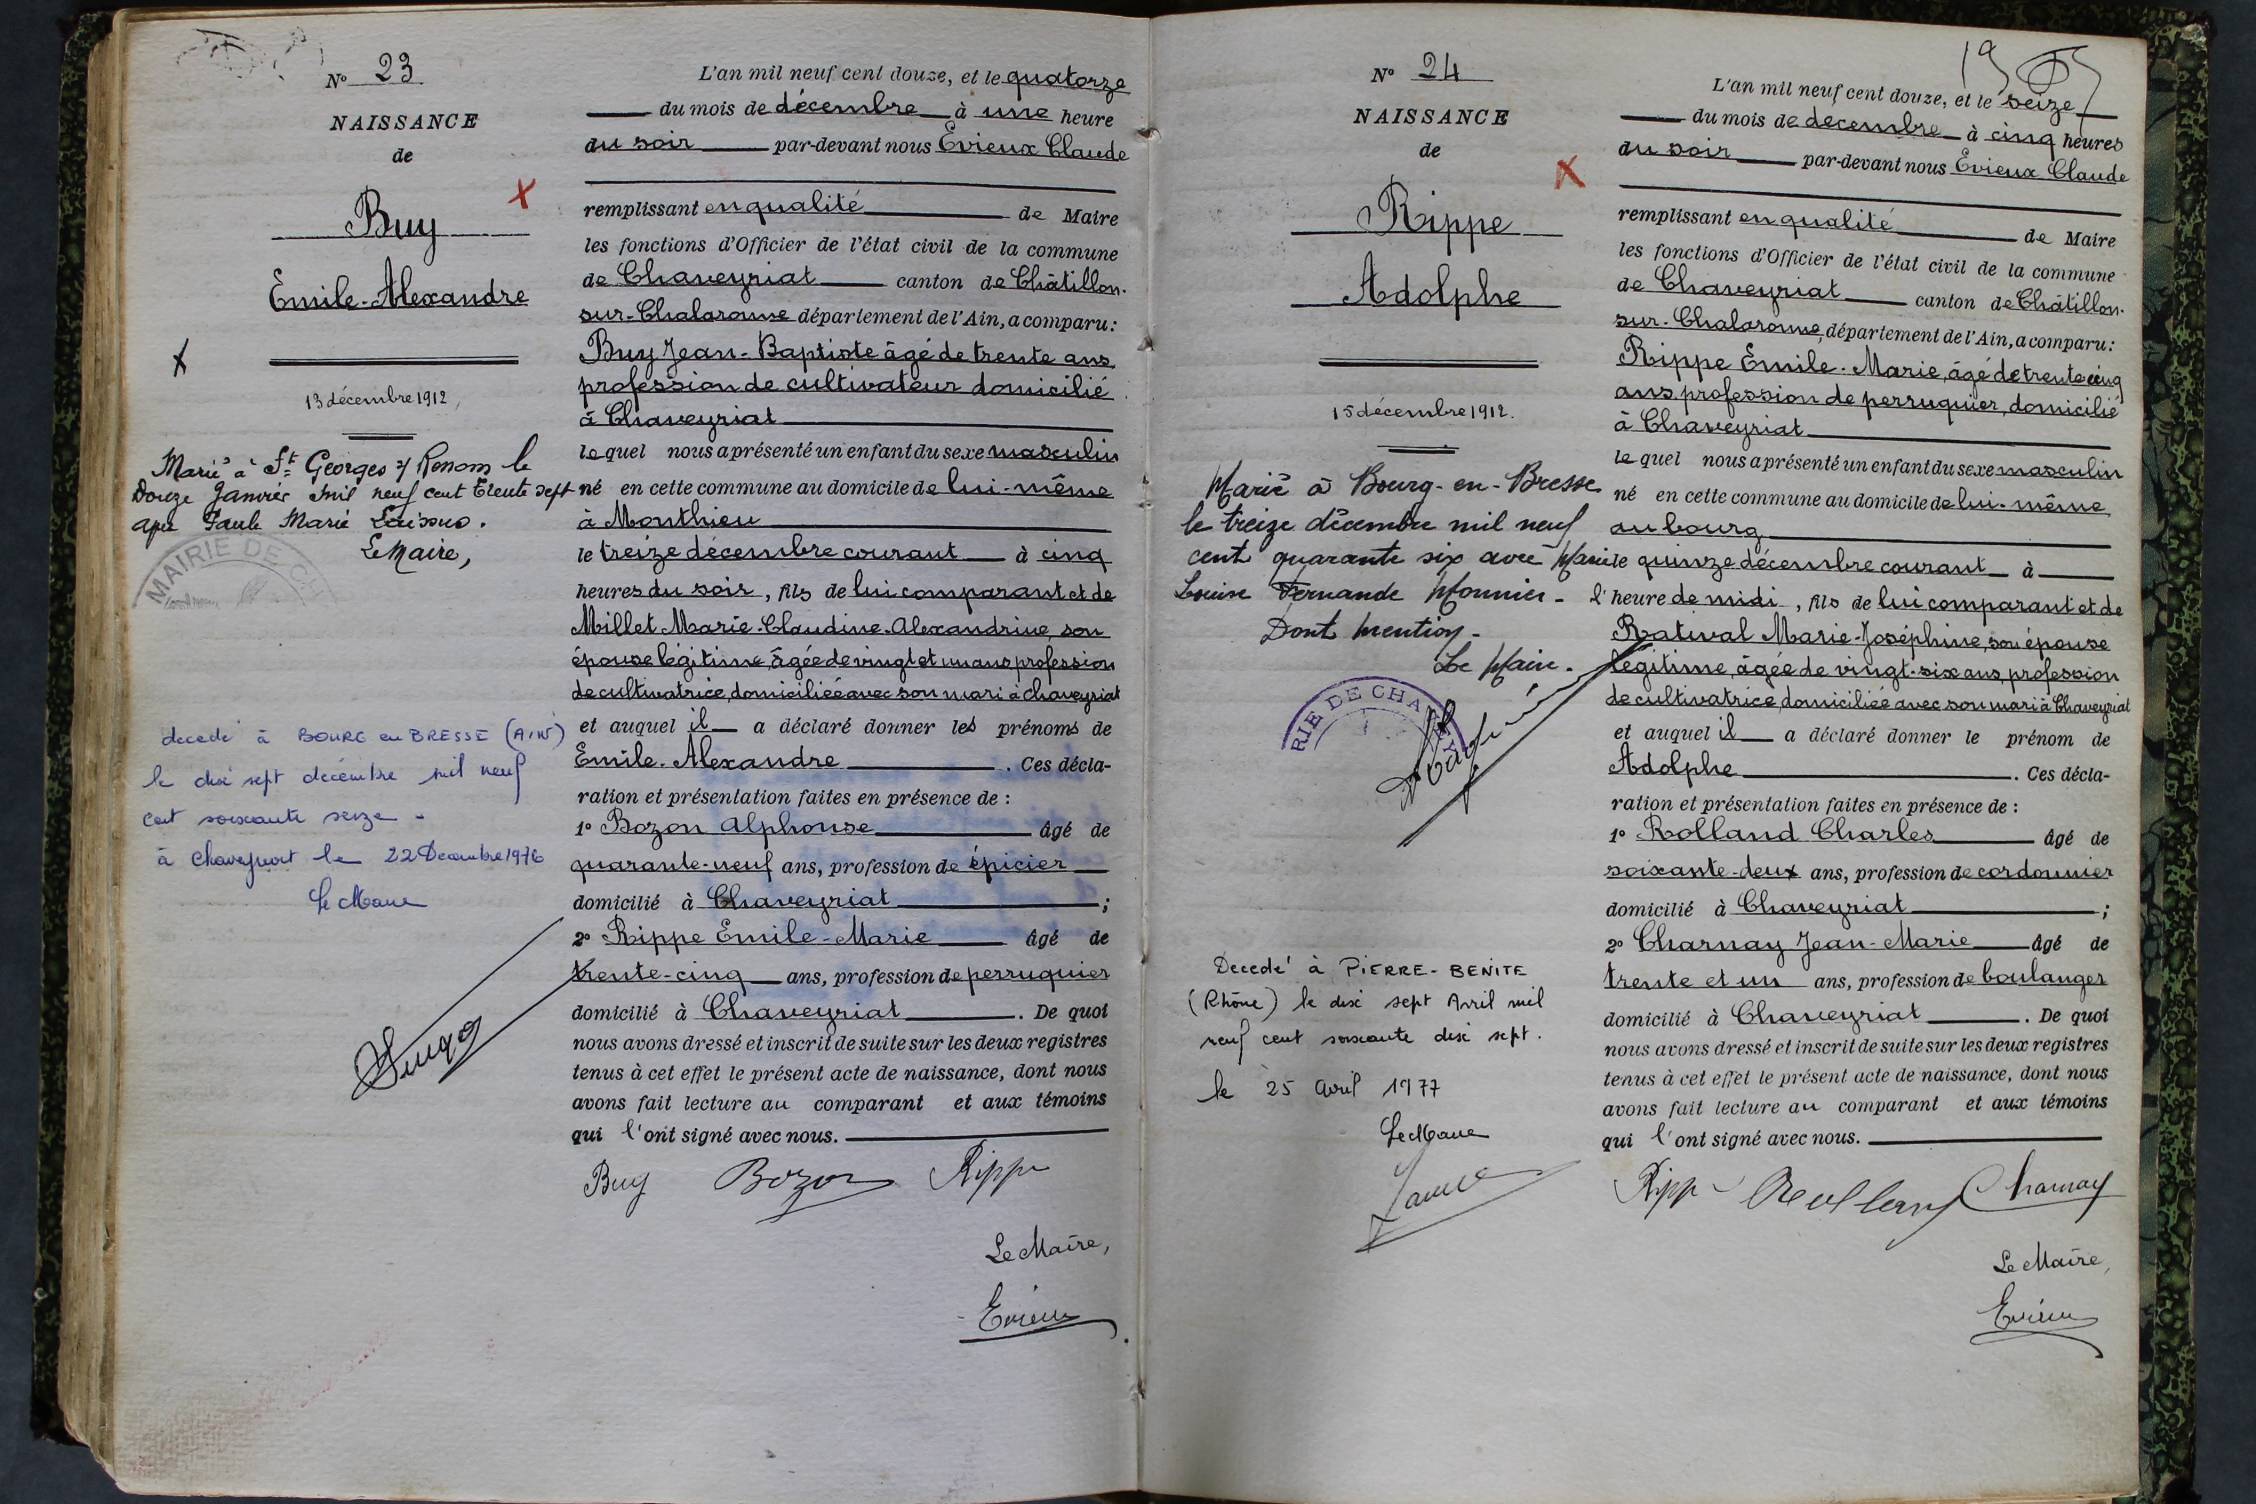 N° 23
NAISSANCE
de
Buy
Emile-Alexandre
13 décembre 1912
Marié à St Georges s/ Renom le
Douze Janvier mil neuf cent trente sept
Paule Marie
Le Maire,
MAIRIE DE CH
decede à BOURG en BRESSE (AIN)
le dix sept decembre mil neuf
cent soixante seize -
à Chaveyriat le 22 Decembre 1976
Le Maire
L'an mil neuf cent douze, et le quatorze
du mois de décembre à une heure
du soir par-devant nous Evieux Claude
remplissant en qualité de Maire
les fonctions d'Officier de l'état civil de la commune
de Chaveyriat canton de Châtillon-
sur-Chalaronne département de l'Ain, a comparu:
Buy Jean-Baptiste âgé de trente ans,
profession de cultivateur domicilié
à Chaveyriat
lequel nous a présenté un enfant du sexe masculin
né en cette commune au domicile de lui-même
à Monthieu
le treize décembre courant à cinq
heures du soir, fils de lui comparant et de
Millet Marie-Claudine-Alexandrine, son
épouse légitime, âgée de vingt et un ans, profession
de cultivatrice, domiciliée avec son mari à Chaveyriat
et auquel il a déclaré donner les prénoms de
Emile-Alexandre. Ces décla-
ration et présentation faites en présence de :
1° Bozon Alphonse âgé de
quarante-neuf ans, profession de épicier
domicilié à Chaveyriat ;
2° Rippe Emile-Marie âgé de
trente-cinq ans, profession de perruquier
domicilié à Chaveyriat. De quoi
nous avons dressé et inscrit de suite sur les deux registres
tenus à cet effet le présent acte de naissance, dont nous
avons fait lecture au comparant et aux témoins
qui l'ont signé avec nous.
Buy Bozon Rippe
Le Maire,
Evieux
N° 24
NAISSANCE
de
Rippe
Adolphe
15 décembre 1912.
Marié à Bourg-en-Bresse
le treize décembre mil neuf
cent quarante six avec Marie
Louise Fernande Monnier -
Dont mention -
Le Maire.
RIE DE CHAVEY
Decede' à PIERRE-BENITE
(Rhône) le dix sept Avril mil
neuf cent soixante dix sept.
le 25 Avril 1977
Le Maire
19
L'an mil neuf cent douze, et le seize
du mois de decembre à cinq heures
du soir par-devant nous Evieux Claude
remplissant en qualité de Maire
les fonctions d'Officier de l'état civil de la commune
de Chaveyriat canton de Châtillon-
sur-Chalaronne, département de l'Ain, a comparu:
Rippe Emile-Marie, âgé de trente cinq
ans, profession de perruquier, domicilié
à Chaveyriat
lequel nous a présenté un enfant du sexe masculin
né en cette commune au domicile de lui-même,
au bourg
le quinze décembre courant à
l'heure de midi, fils de lui comparant et de
Ratival Marie-Joséphine, son épouse
légitime, âgée de vingt-six ans, profession
de cultivatrice, domiciliée avec son mari à Chaveyriat
et auquel il a déclaré donner le prénom de
Adolphe. Ces décla-
ration et présentation faites en présence de :
1° Rolland Charles âgé de
soixante-deux ans, profession de cordonnier
domicilié à Chaveyriat ;
2° Charnay Jean-Marie âgé de
trente et un ans, profession de boulanger
domicilié à Chaveyriat. De quoi
nous avons dressé et inscrit de suite sur les deux registres
tenus à cet effet le présent acte de naissance, dont nous
avons fait lecture au comparant et aux témoins
qui l'ont signé avec nous.
Rippe Rolland Charnay
Le Maire,
Evieux